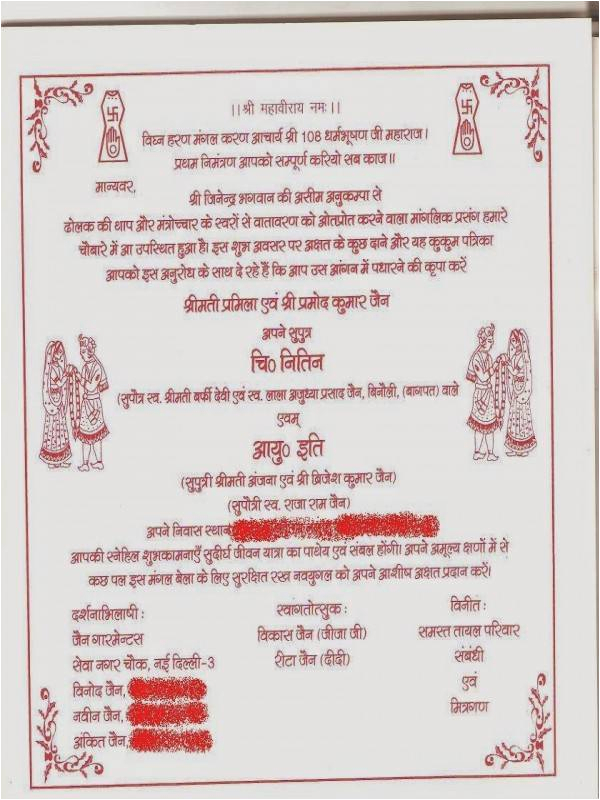 ।।श्री महावीराय नमः।।
विघ्न हरण मंगल करण आचार्य श्री 108 धर्मभूषण जी महाराज।
प्रथम निमंत्रण आपको सम्पूर्ण करियो सब काज॥
मान्यवर,
श्री जिनेन्द्र भगवान की असीम अनुकम्पा से
ढोलक की थाप और मंत्रोच्चार के स्वरों से वातावरण को ओतप्रोत करने वाला मांगलिक प्रसंग हमारे
चौबारे में आ उपस्थित हुआ है। इस शुभ अवसर पर अक्षत के कुछ दाने और यह कुकुम पत्रिका
आपको इस अनुरोध के साथ दे रहे हैं कि आप उस आंगन में पधारने की कृपा करें
श्रीमती प्रमिला एवं श्री प्रमोद कुमार जैन
अपने सुपुत्र
चि० नितिन
(सुपौत्र स्व. श्रीमती बर्फी देवी एवं स्व. लाला अजुध्या प्रसाद जैन, बिनौली, (बागपत) वाले
एवम्
आयु० इति
(सुपुत्री श्रीमती अंजना एवं श्री ब्रिजेश कुमार जैन)
(सुपौत्री स्व. राजा राम जैन)
अपने निवास स्थान
आपकी स्नेहिल शुभकामनाएँ सुदीर्घ जीवन यात्रा का पाथेय एवं संबल होंगी। अपने अमूल्य क्षणों में से
कछ पल इस मंगल बेला के लिए सुरक्षित रख नवयुगल को अपने आशीष अक्षत प्रदान करें।
दर्शनाभिलाषी :
जैन गारमेन्टस
सेवा नगर चौक, नई दिल्ली-3
विनोद जैन,
नवीन जैन,
अंकित जैन,
स्वागतोत्सुक :
विकास जैन (जीजा जी)
रीटा जैन (दीदी)
विनीत :
समस्त तायल परिवार
संबंधी
एवं
मित्रगण